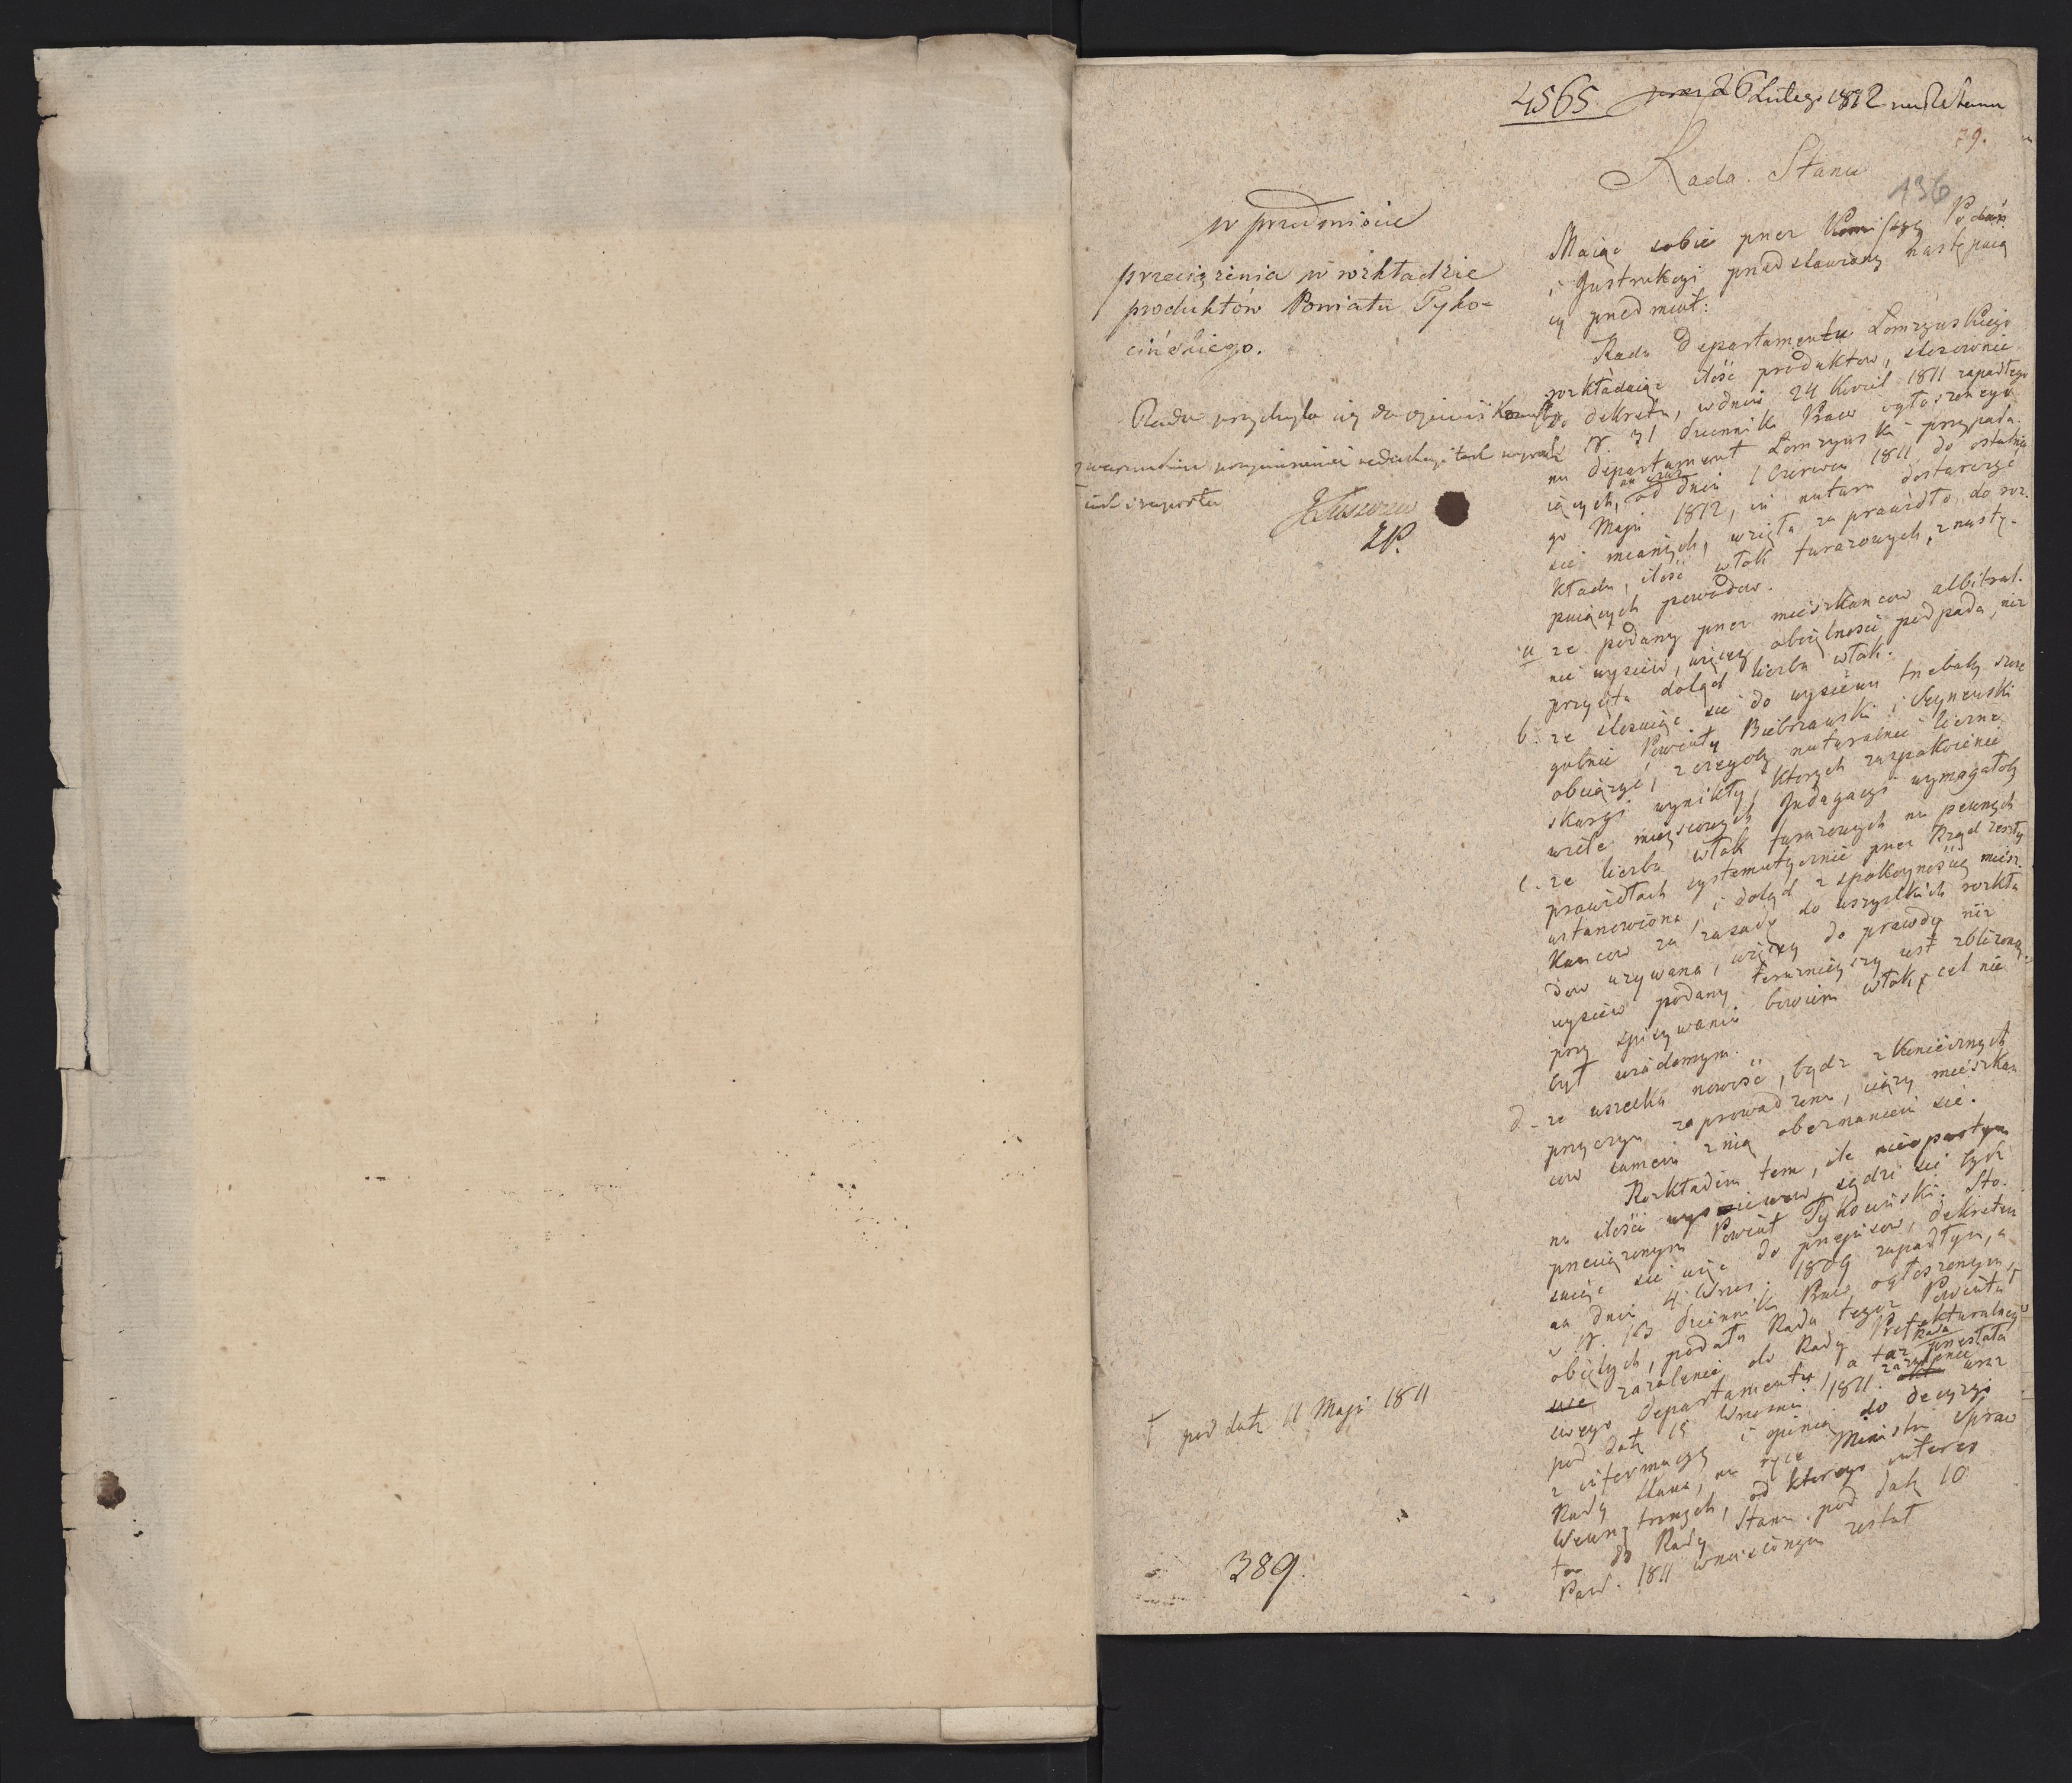 4565 26 Lutego 1812
39.
Rada Stanu
136
w przedmiocie
przeciążenia w rozkładzie
produktów Powiatu Tyko-
cińskiego.
Rada przychyla się do opinii
JP.
Maiąc sobie przez Komissyą Podań
i Instrukcyi przedstawiony następuią
cy przedmiot:
Rada Departamentu Łomżyńskiego
rozkładaiąc ilość produktow, stosownie
do dekretu, w dniu 24 Kwiet. 1811 zapadłego
w N. 31 dziennika Praw ogłoszonego
na departament Łomżyński przypada-
iących, od dnia 1 Czerwca 1811 do ostatnie
go Maja 1812, in natura dostarczyć
się maiących, wzięła za prawidło do roz-
kładu, ilość włok tarazowych, z nastę-
puiących powodow.
a że podany przez mieszkancow albitral.
nie wysiew, więcey obiętności podpada, niż
przyięta dotąd liczba włok.
b. że stosuiąc się do wysiewu trzebaby szcze
gulnie Powiaty Biebrzański i Seynenski
obciążyć, z czegoby naturalnie liczne
skargi wynikły, ktorych zaspokoienie
wiele mieyscowych Indagacyi wymagałoby
c. że liczba włok tarazowych na pewnych
prawidłach systematycznie przez Rząd zeszły
ustanowiona, i dotąd z spokoynością miesz-
kancow za zasadę do wszystkich rozkła
dow używana, więcey do prawdy niż
wysiew podany teraznieyszy iest zbliżoną,
przy spisywaniu bowiem włok, cel nie
był wiadomym.
d. że wszelka nowość, bądź z koniecznych
przyczyn zaprowadzona, ciąży mieszkan
cow samem z nią obeznaniem się.
Rozkładem tem, ile nieopartym
na ilości wysiewow, sądzi się być
przeciążonym Powiat Tykocinski. Sto-
suiąc się więc do przepisow, dekretem
na dniu 4 Wrzes. 1809 zapadłym, a
w N. 13 dziennika Praw ogłoszonym,
obiętych, podała Rada tegoż Powiatu †
zażalenie do Rady Prefekturalney
swego Departamentu, a taż Rada
pod datą 15 Września 1811. przesłała
z informacyą i opinią do decyzyi
Rady Stanu, na ręce Ministra Spraw
Wewnętrznych, od ktorego interes
ten do Rady Stanu pod datą 10
Pazd. 1811 wniesionym został
† pod datą 11 Maja 1811
389.